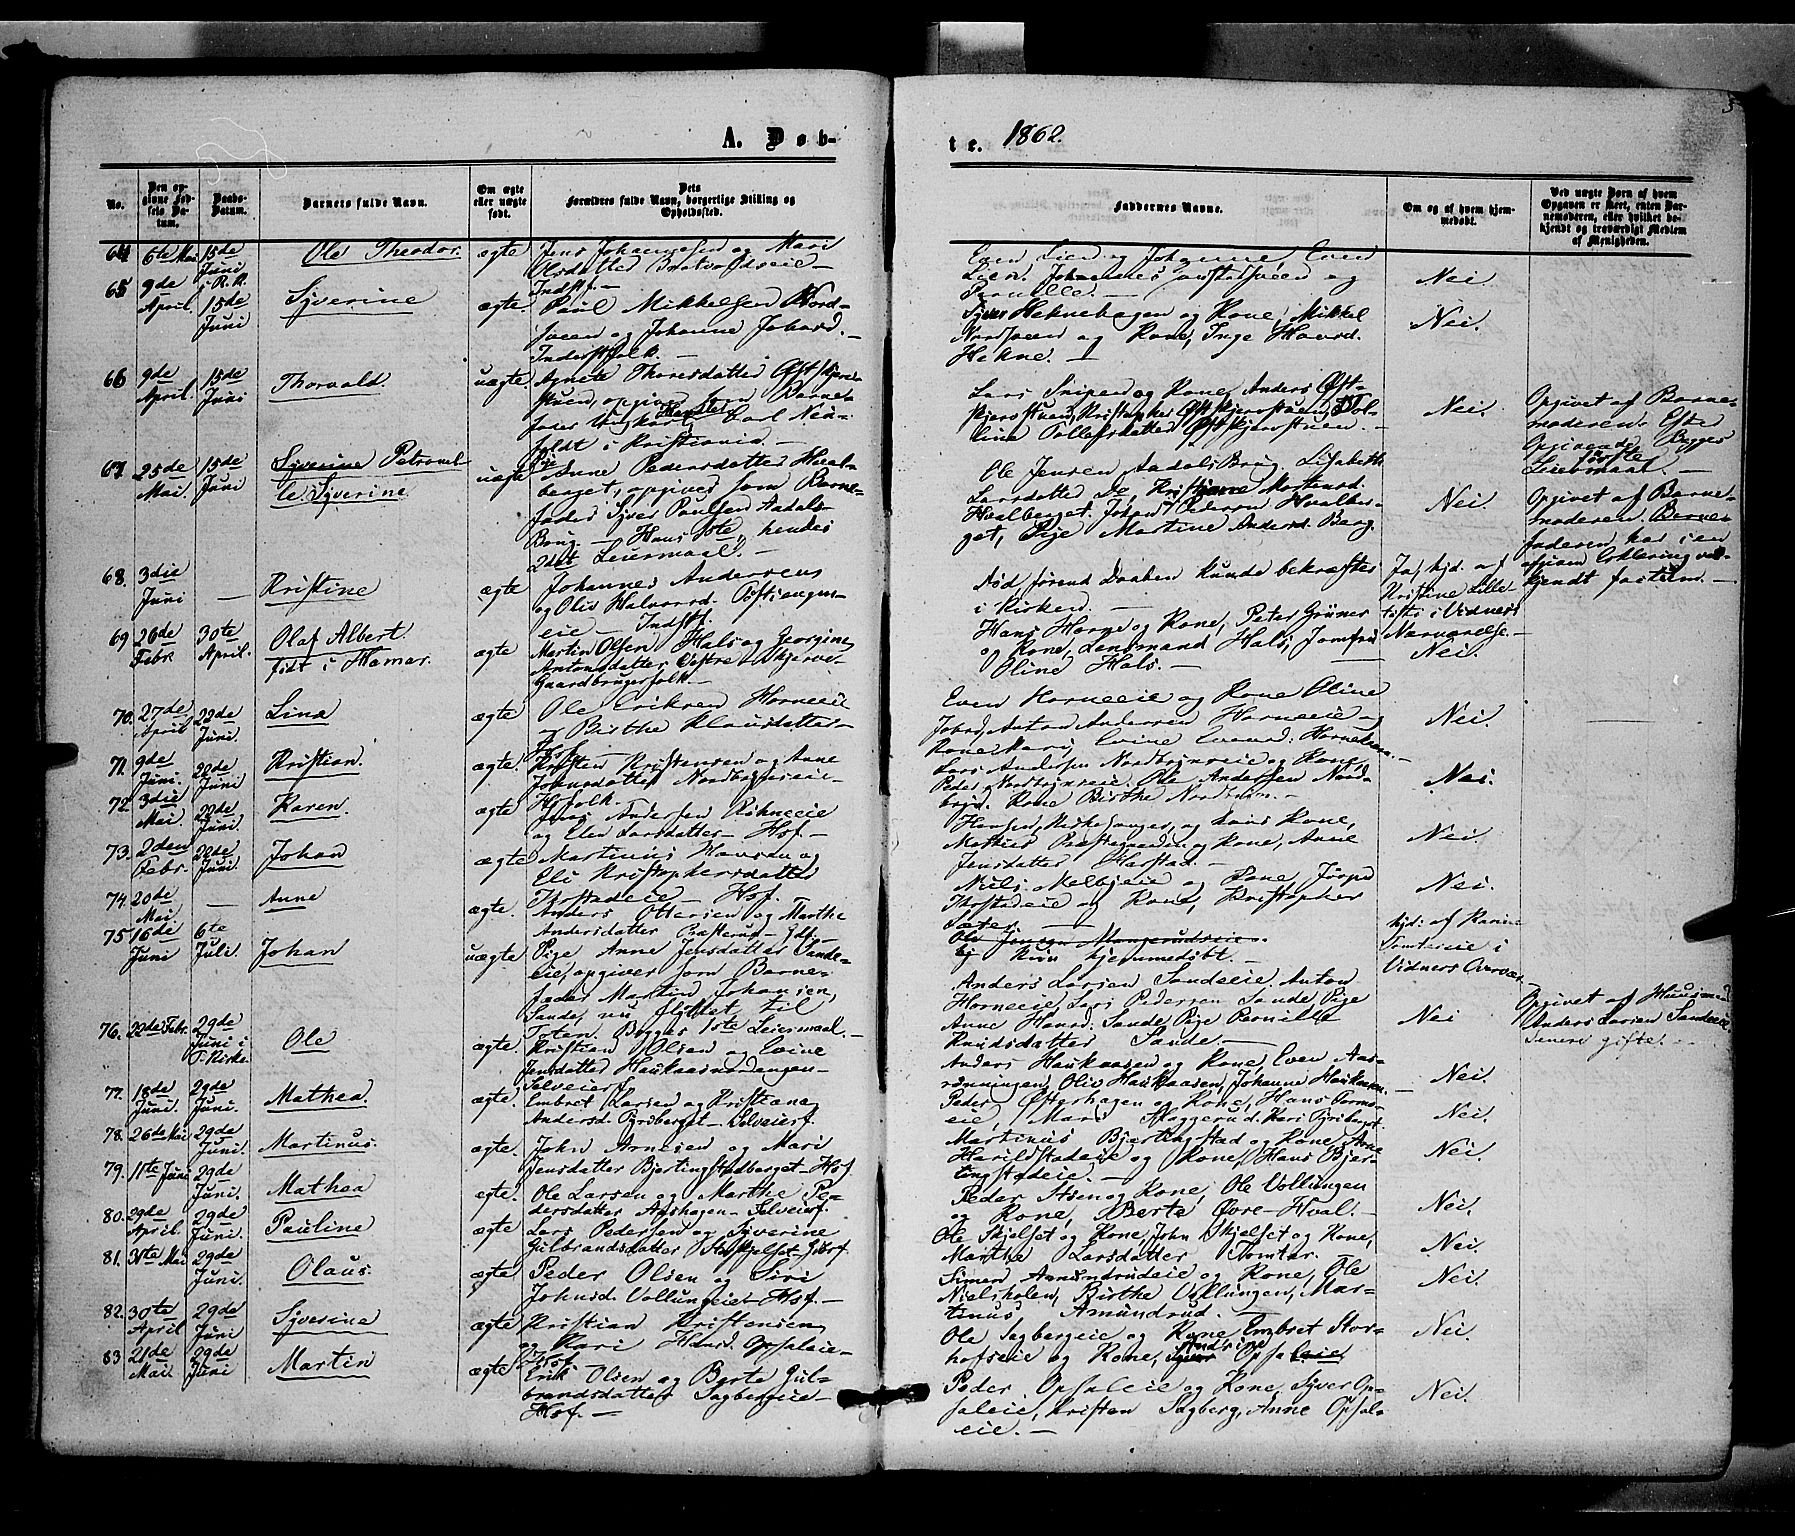 A. Døb-
te. 1862.
No.
Den opgivne Fødsels Datum.
Daabs-Datum.
Barnets fulde Navn.
Om ægte eller uægte født.
Dets Forældres fulde Navn, borgerlige Stilling og Opholdssted.
Faddernes Navne.
Om og af hvem hjemmedøbt.
Ved uægte Børn af hvem Opgaven er skeet, enten Barnemoderen, eller hvilket bekjendt og troværdigt Medlem af Menigheden.
64 6te Mai 15de Juni Ole Theodor. ægte
Jens Johannesen og Mari
Olsdatter
Indstf. —
Even Lien og Johanne, Even
Lien, Johannes og
Pernille. —
Nei.
65 9de April. 15de Juni Syverine ægte.
Paul Mikkelsen Nord-
sveen og Johanne Johasd. —
Inderstfolk. —
Syver Heknehagen og Kone, Mikkel
Nordsveen og Kone, Inge Hansd.
Hekne. —
Nei.
66 9de April. 15de Juni Thorvald. uægte.
Agnete Thoresdatter Østskjerv-
stuen, opgiver som Barne-
fader Ungkarl Carl Neu-
foldt i Kristiania. —
Lars Sniper og Kone, Anders Øst-
skjervstuen, Kristopher Østskjervstuen,
Tollefsdatter Østskjervstuen. —
Nei.
Opgivet af Barne-
moderen. Efter
Opgivende Begges
første
Leiermaal. —
67 25de Mai. 15de Juni Syverine Petronel-
le Syverine uægte
Pige Anne Pedersdatter Hval-
berget, opgiver som Barne-
fader Syver Paulsen Aadals-
Brug. — Hans 1ste, hendes
2det Leiermaal. —
Ole Jensen Aadals Brug. Lisabeth
Larsdatter Do, Kristiane Mortensd.
Hvalberget. Johan Pedersen Hvalber-
get, Pige Martine Andersd. Berg.
Nei.
Opgivet af Barne-
moderen. Barne-
faderen har i en
Erklæring ved-
kjendt
68. 3die Juni — Kristine ægte
Johannes Andersen
og Oliv Halvorsd.
eie — Indstf.
Død førend Daaben kunde bekræftes
i Kirken. —
Ja, hjd. af
Kristine Lille-
i Vidners
Nærværelse. —
69 26de Febr. 30te April. Olaf Albert.
født i Hamar. ægte
Martin Olsen Hals og Georgine
Antonsdatter Vestre Skjerve-
Gaardbrugerfolk. —
Hans Horge og Kone, Peter Grüner
og Kone, Lensmand Hals, Jomfru
Oline Hals. —
Nei.
70. 27de April 22de Juni. Lina ægte
Ole Eriksen Horneeie
— Birthe Klausdatter —
Hsf. —
Even Horneeie og Kone Oline
Johsd, Anton Andersen Horneeie og
Kone Kari, Evine Evensd. Horneeie. —
Nei.
71. 9de Juni. 22de Juni Kristian. ægte.
Kristen Kristensen og Anne
Johnsdatter Nordbrynseie
Hsfolk. —
Lars Andersen Nordbrynseie og Kone,
Peder Nordbrynseie. Ole Andersen Nord-
bryn. Kone Birthe —
Nei.
72. 3die Mai 22de Juni. Karen. ægte
Jens Andersen Røhneeie
og Elen Larsdatter — Hsf. —
Hansen, Kirkesanger, og hans Kone,
Mathies Præstegaarden og Kone, Anne
Jensdatter Harstad. —
Nei.
73. 2den Febr. 22de Juni. Johan ægte
Martinus Hansen og
Eli Kristophersdatter
Hsf.
Niels Melbyeie og Kone,
og Kone, Kristopher
Sæter. —
Nei.
74. 20de Mai. — Anne ægte.
Anders Ottersen og Marthe
Andersdatter Præsterud — Gdf. —
Ole Jensen Mangerudseie.
Ej Kun hjemmedøbt. —
hjd: af Karine
Tomtereie i
Vidners Overvær.
75 16de Juni 6te Juli. Johan uægte
Pige Anne Jensdatter Sande-
eie, opgiver som Barne-
fader Martin Johansen,
Sande, nu flyttet til
Toten. Begges 1ste Leiermaal.
Anders Larsen Sandeeie, Anton
Horneeie, Lars Pedersen Sande, Pige
Anne Hansd. Sande, Pige Pernille
Knudsdatter Sande. —
Nei
Opgivet af Huusmand
Anders Larsen Sandeeie
Senere gifte. —
76. 22de Febr. 29de Juni i T. Kirke Ole ægte.
Kristian Olsen og Evine
Jensdatter Haukaasmodengen —
Selveierf.
Anders Haukaasen og Kone, Even Aas-
rønningen, Oliv Haukaasen, Johanne Haukaasen. —
Nei.
77. 18de Juni. 29de Juni. Mathea. ægte.
Embret Larsen og Kristiane
Andersd. Fyrisberget — Selveierf.
Peder Østerhagen og Kone, Hans
eie, Mari Skaggerud. Kari Fyrisberget.
Nei.
78. 26de Mai 29de Juni. Martinus. ægte.
John Arnesen og Mari
Jensdatter Bjertingstadberget — Hsf.
Martinus Bjertingstad og Kone, Arne
Harildstadeie og Kone, Hans Bjer-
tingstadeie. —
Nei.
79. 11te Juni 29de Juni. Mathea ægte
Ole Larsen og Marthe Pe-
dersdatter Aashagen — Selveierf.
Peder Steen og Kone, Ole Vollungen
og Kone, Berte Øvre-Hval. —
Nei.
80. 29de April. 29de Juni. Pauline ægte
Lars Pedersen og Syverine
Gulbrandsdatter Skjelset — Gdbrf.
Ole Skjelset og Kone, John Skjelset og Kone,
Marthe Larsdatter Tomter.
Nei.
81. 31te Mai 29de Juni. Olaus. ægte
Peder Olsen og Siri
Johnsd. Vollungeie — Hsf. —
Simen Aamundrudeie og Kone, Ole
Nielsholen, Birthe Vollungen, Mar-
tinus Amundrud.
Nei.
82. 30te April 29de Juni Syverine ægte
Kristian Kristensen
og Kari Hansd. Opsaleie —
Hsf.
Ole Sagbergeie og Kone, Embret Stor-
hofseie og Kone, Andrine Opsal
Nei.
83 21de Mai. 29de Juni Martin ægte
Erik Olsen og Berte Gul-
brandsdatter Sagbergeie —
Hsf. —
Peder Opsaleie og Kone, Syver Op-
saleie, Kristen Sagberg, Anne Opsal-
eie. —
Nei.